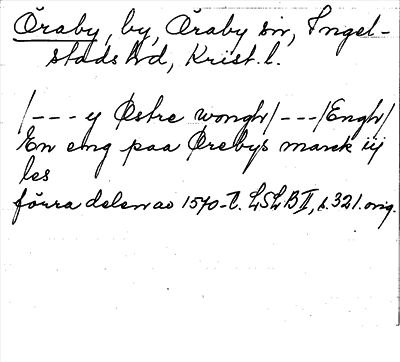 Öraby, by, Öraby sn, Ingel-
stads hd, Krist. l.
/---y Østre wongh/---/Engh/
En eng paa Ørebys marck iij
les
förra delen av 1570-t. LSLB II, s. 321. orig.